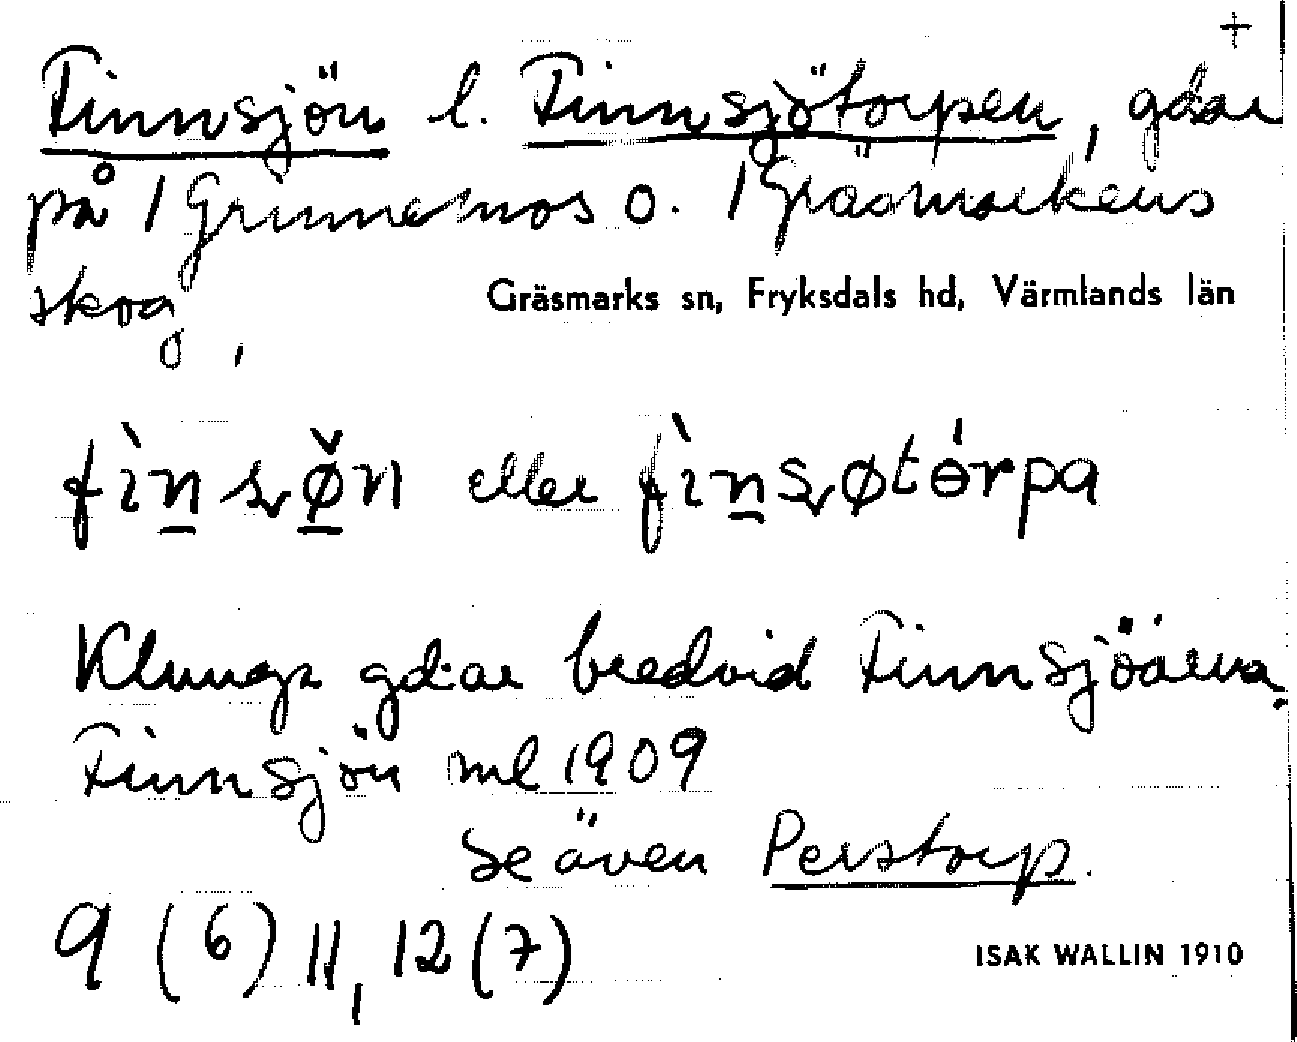 +
Finnsjön l. Finnsjötorpen, gdar
på / Grinnemos o. / Gräsmarkens
skog,
Gräsmarks sn, Fryksdals hd, Värmlands län
fìn̲sø̲̌n eller fìn̲søtɵ́rpa
Klunga gdar bredvid Finnsjöarna.
Finnsjön ml 1909
Se även Perstorp.
9 (6) 11, 12 (7)
ISAK WALLIN 1910